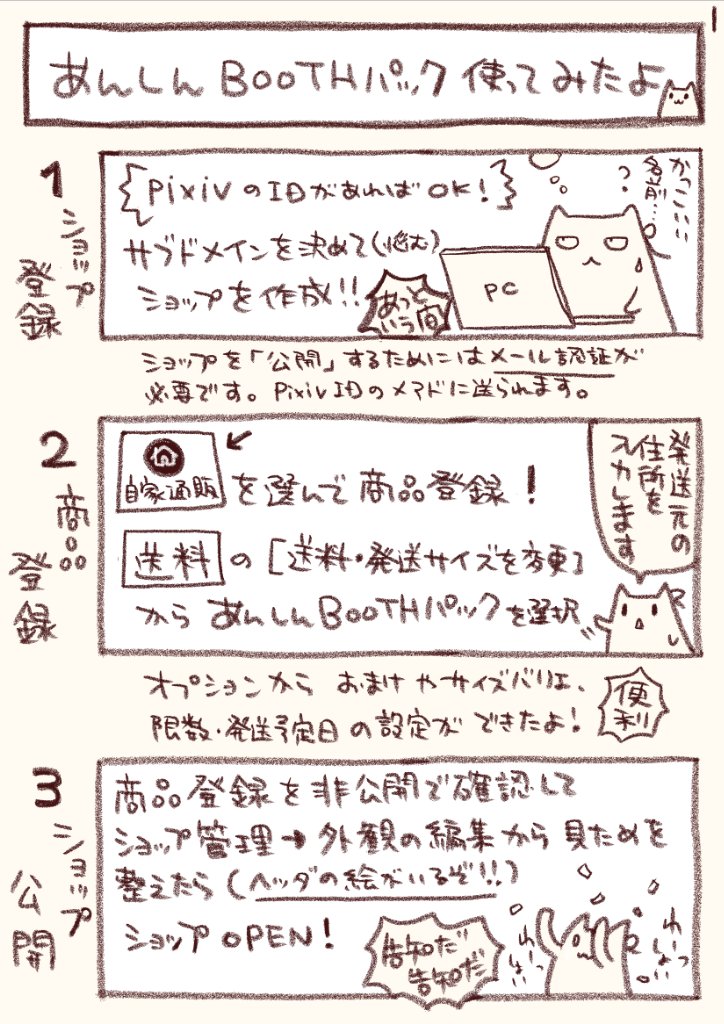 1
あんしんBOOTHパック 使ってみたよ
1
ショップ
登録
pixivのIDがあればOK!
サブドメインを決めて(悩む)
ショップを作成!!
あっと
いう間
PC
かっこいい
名前…
ショップを「公開」するためにはメール認証が
必要です。PixivIDのメアドに送られます。
2
商品
登録
自家通販
を選んで商品登録!
送料 の[送料・発送サイズを変更]
からあんしんBOOTHパックを選択
発送元の
住所を
入力します
オプションから おまけやサイズバリエ、
限数・発送予定日の設定ができたよ!
便利
3
ショップ
公開
商品登録を非公開で確認して
ショップ管理→外観の編集から見ためを
整えたら(ヘッダの絵がいるぞ!!)
ショップOPEN!
告知だ
告知だ
わーっ
わーっ